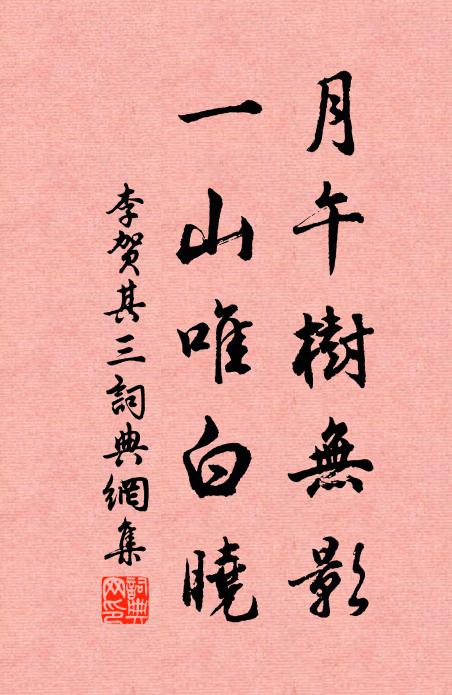 月午樹無影
一山唯白曉
李賀其三詞典網集
詞典網印